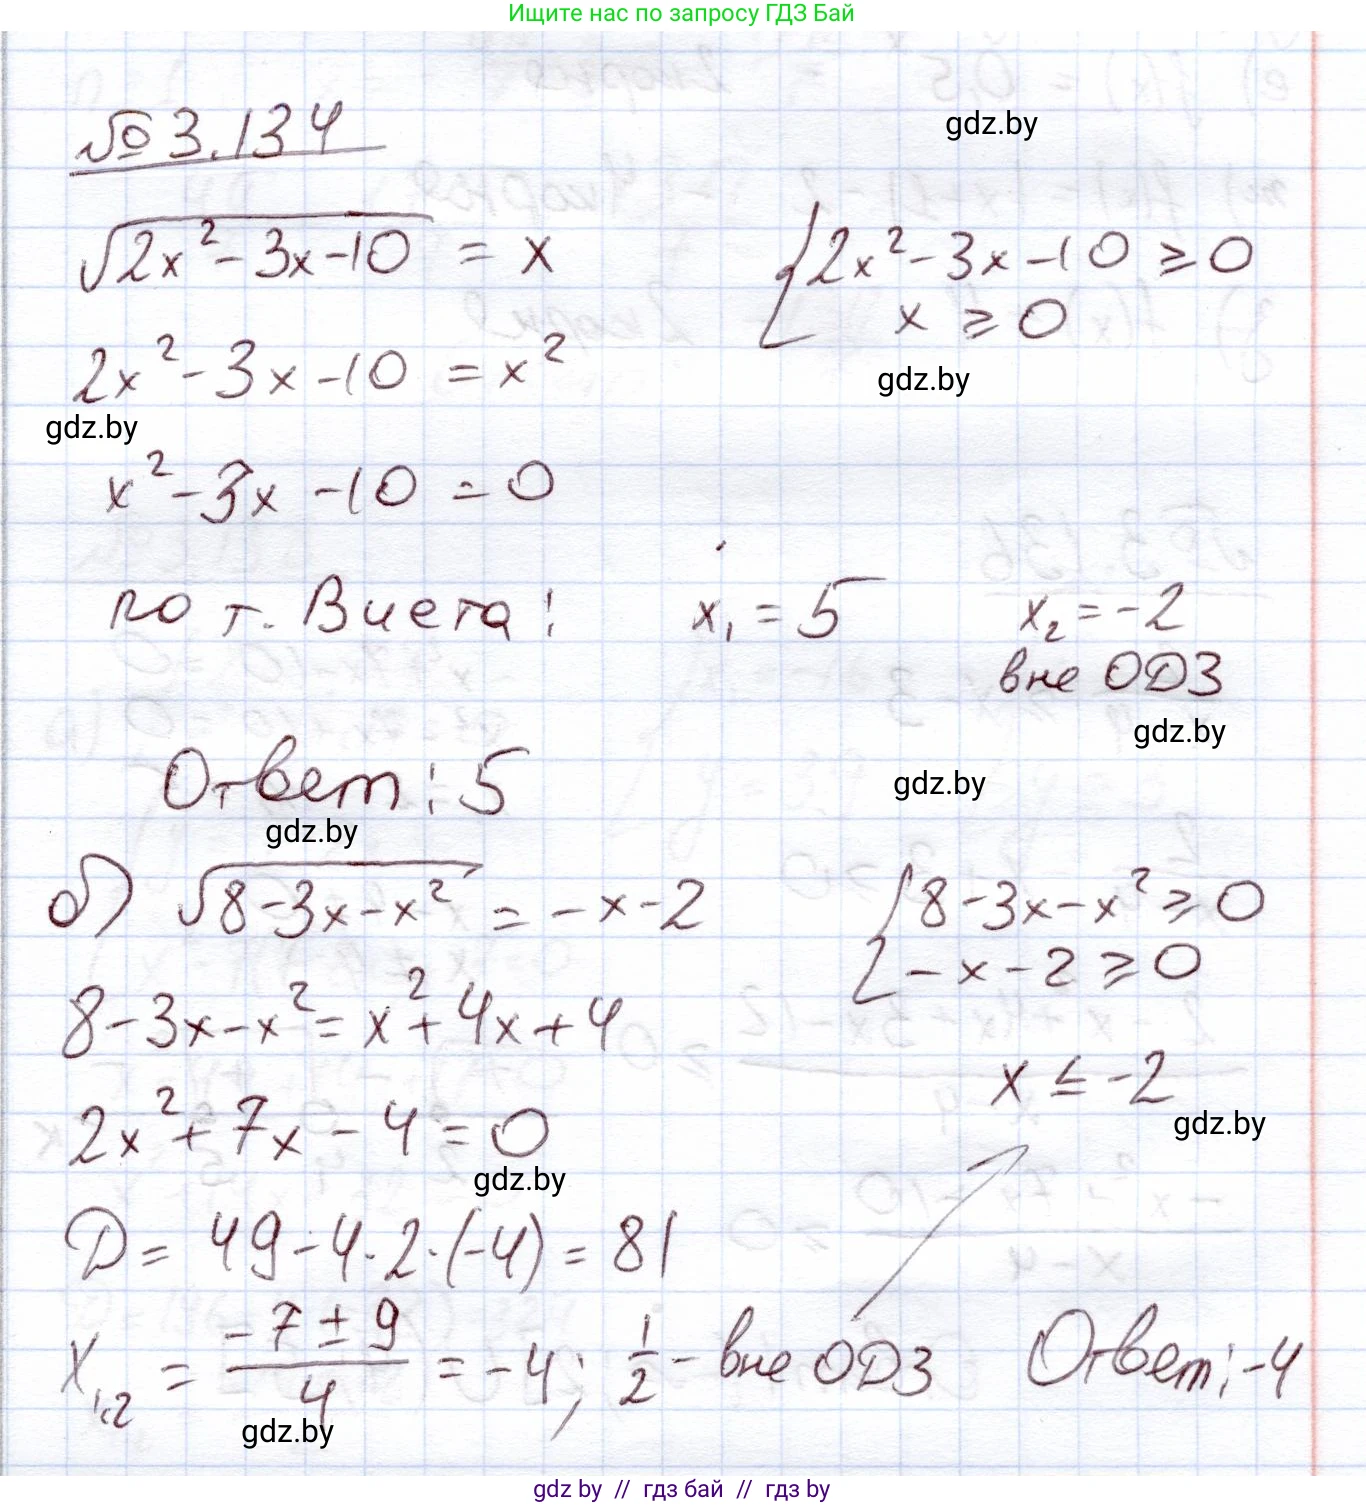 Ищите нас по запросу ГДЗ Бай
№ 3.134
gdz.by
√(2x² - 3x - 10) = x
{ 2x² - 3x - 10 ≥ 0
x ≥ 0
2x² - 3x - 10 = x²
gdz.by
gdz.by
x² - 3x - 10 = 0
по т. Виета: x₁ = 5 x₂ = -2
вне ОДЗ
gdz.by
Ответ: 5
gdz.by
gdz.by
б) √(8 - 3x - x²) = -x - 2
{ 8 - 3x - x² ≥ 0
-x - 2 ≥ 0
8 - 3x - x² = x² + 4x + 4
x ≤ -2
gdz.by
2x² + 7x - 4 = 0
gdz.by
D = 49 - 4 · 2 · (-4) = 81
x₁,₂ = (-7 ± 9)/4 = -4; 1/2 - вне ОДЗ Ответ: -4
gdz.by
gdz by // гдз бай // gdz by